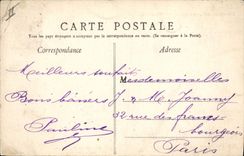 CARTE POSTALE
Tous les pays étrangers n'acceptent pas la correspondance au recto. (Se renseigner à la Poste).
Correspondance
Adresse
Meilleurs souhaits
Bons baisers
Pauline
Mesdemoiselles
J. & M. Joanny
52 rue des francs-
bourgeois
Paris